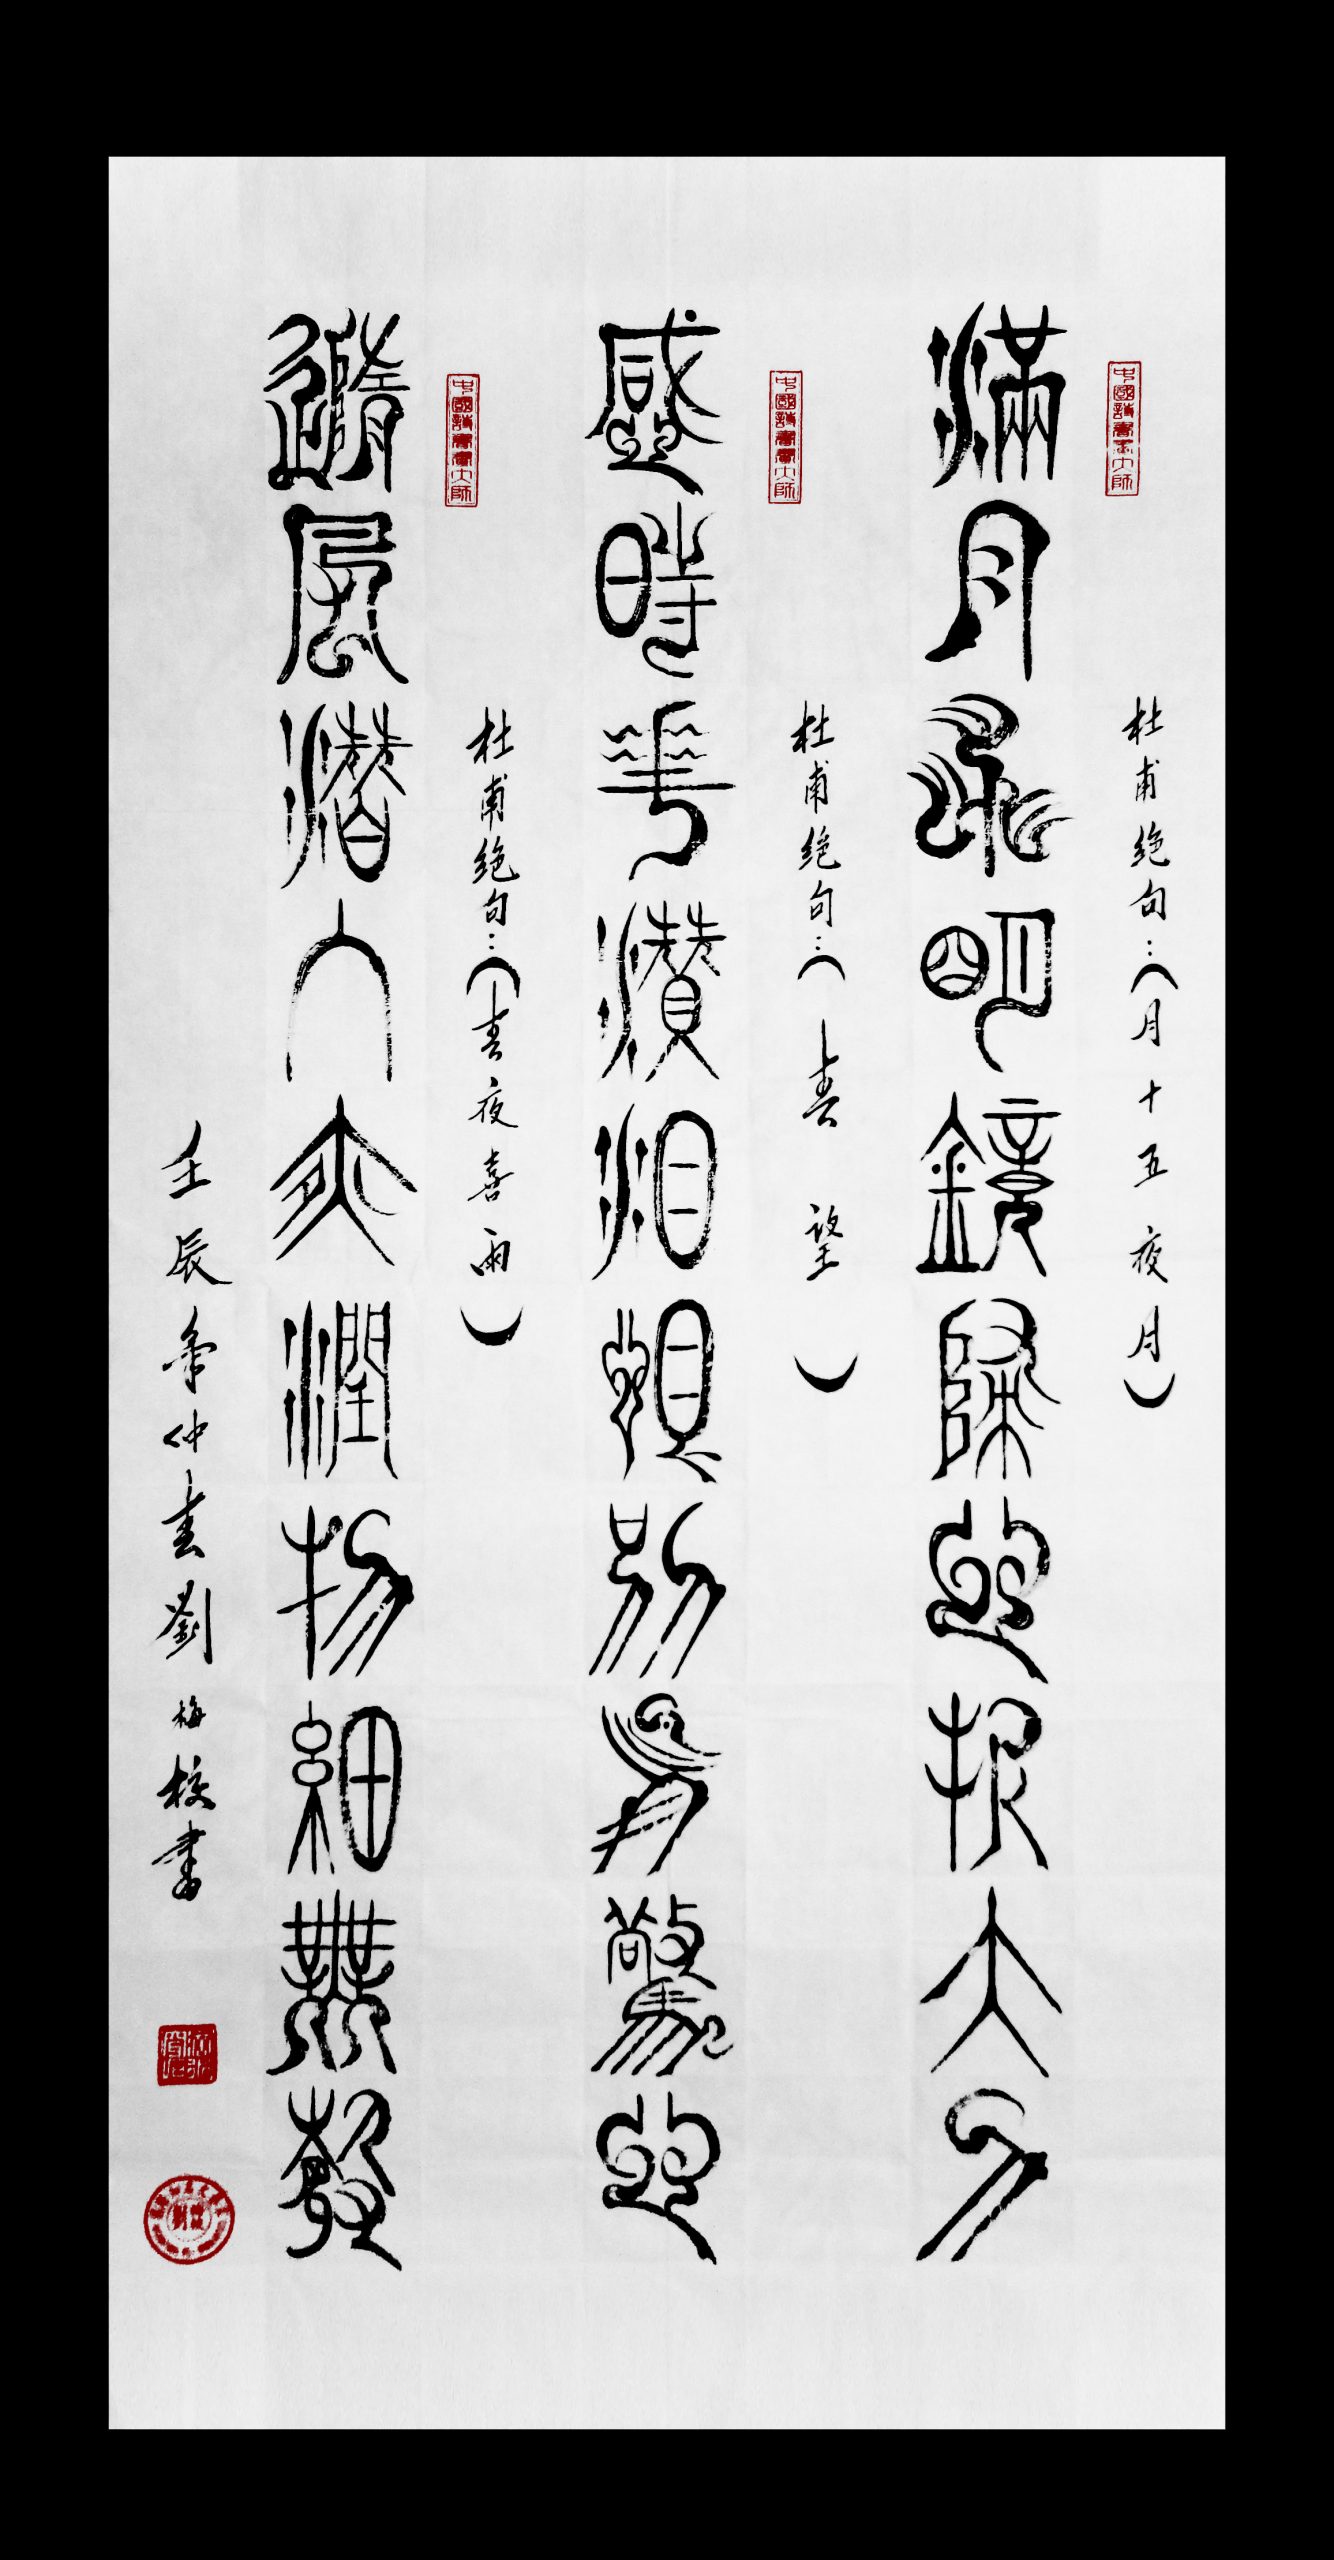 中國詩書畫大師
杜甫绝句：（月十五夜月）
滿月飛明鏡歸心折大刀
中國詩書畫大師
杜甫绝句：（春望）
感時華灒泪恨別鳥驚心
中國詩書畫大師
杜甫绝句：（春夜喜雨）
隨風潛入夜潤物細無聲
壬辰年仲春劉梅校書